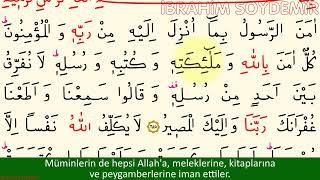 İBRAHİM SOYDEMİR
اٰمَنَ الرَّسُولُ بِمَٓا اُنْزِلَ اِلَيْهِ مِنْ رَبِّهٖ وَالْمُؤْمِنُونَؕ
كُلٌّ اٰمَنَ بِاللّٰهِ وَمَلٰٓئِكَتِهٖ وَكُتُبِهٖ وَرُسُلِهٖؕ لَا نُفَرِّقُ
بَيْنَ اَحَدٍ مِنْ رُسُلِهٖ وَقَالُوا سَمِعْنَا وَاَطَعْنَا
غُفْرَانَكَ رَبَّنَا وَاِلَيْكَ الْمَصٖيرُ ﴿٢٨٥﴾ لَا يُكَلِّفُ اللّٰهُ نَفْسًا اِلَّا
Müminlerin de hepsi Allah'a, meleklerine, kitaplarına
ve peygamberlerine iman ettiler.